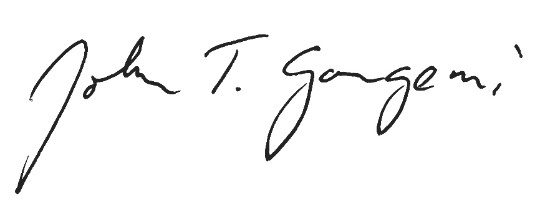 John T. Gangemi